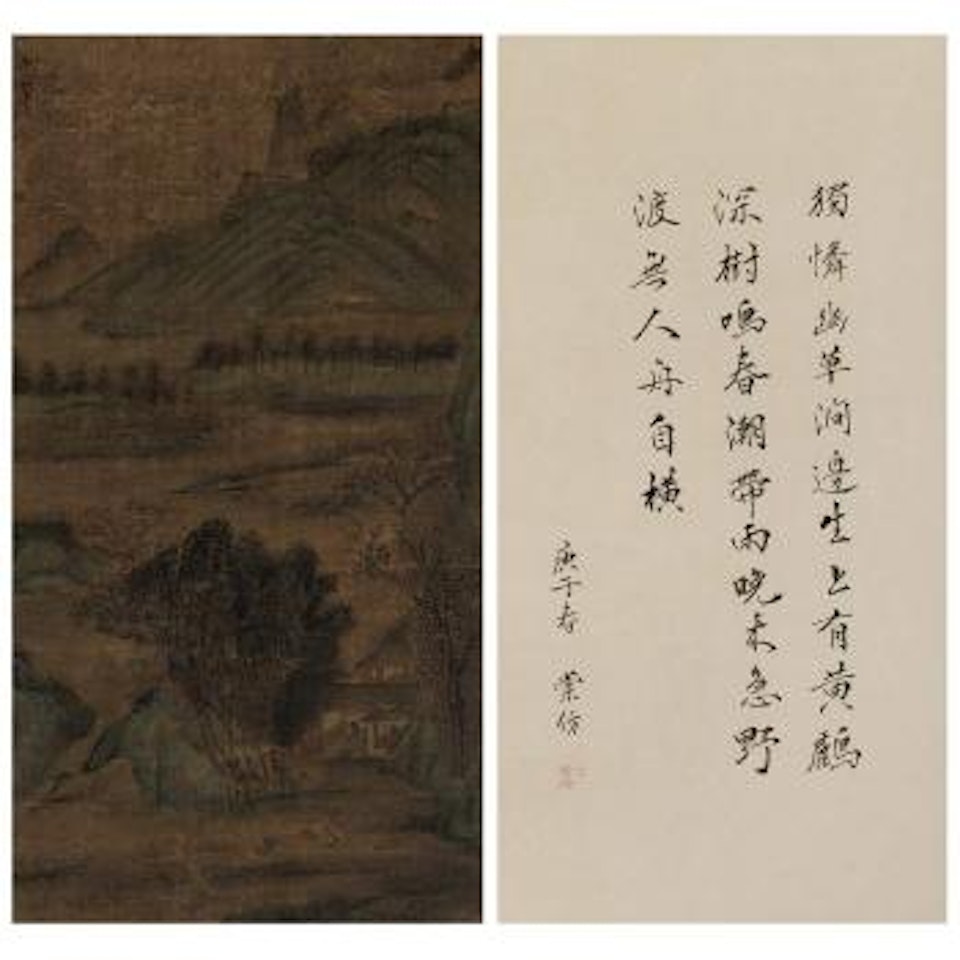 獨憐幽草澗邊生上有黃鸝
深樹鳴春潮帶雨晚来急野
渡無人舟自横
庚子春